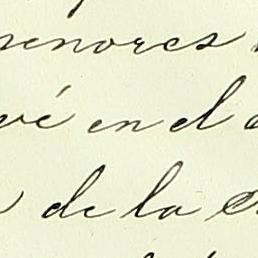 menores
vé en el
de la